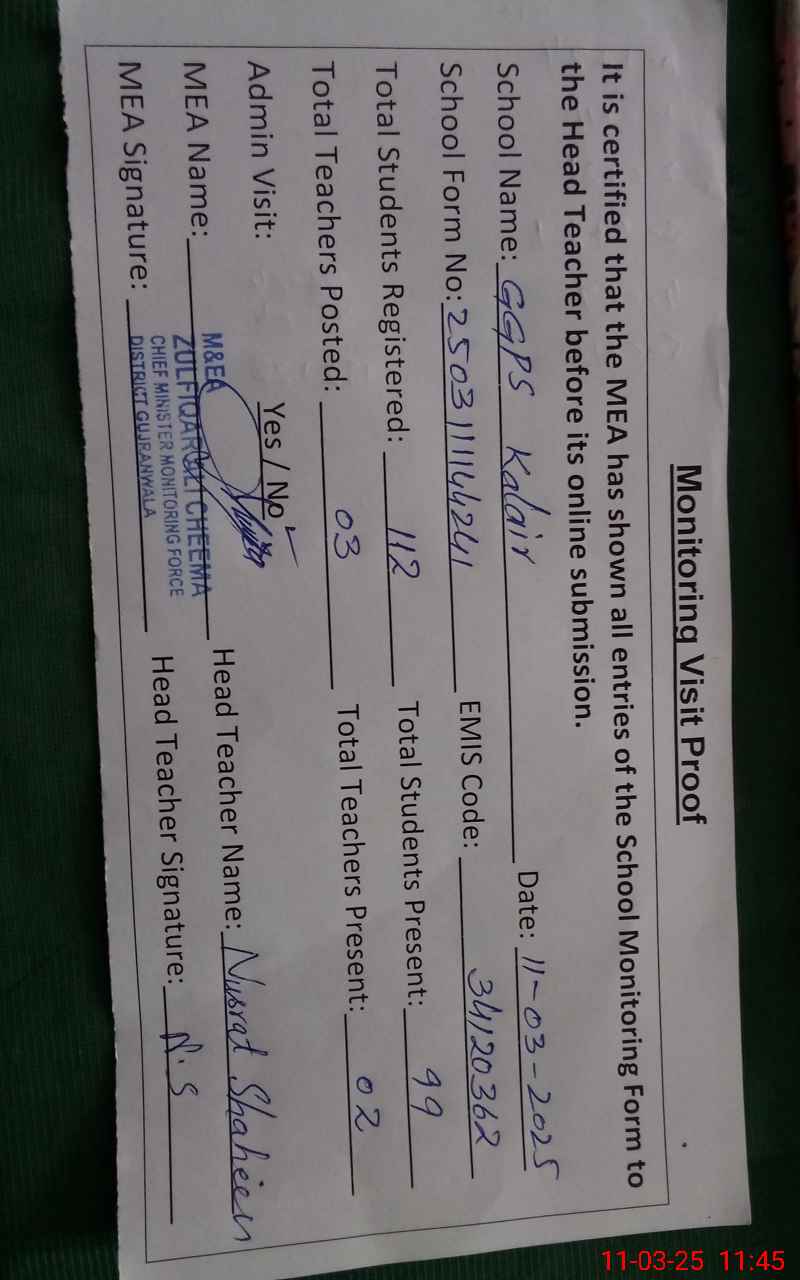 Monitoring Visit Proof
It is certified that the MEA has shown all entries of the School Monitoring Form to
the Head Teacher before its online submission.
School Name: GGPS Kalair Date: 11-03-2025
School Form No: 250311144241 EMIS Code: 34120362
Total Students Registered: 112 Total Students Present: 99
Total Teachers Posted: 03 Total Teachers Present: 02
Admin Visit: Yes / No ✓
MEA Name: Head Teacher Name: Nusrat Shaheen
M&EA
ZULFIQAR ALI CHEEMA
CHIEF MINISTER MONITORING FORCE
DISTRICT GUJRANWALA
MEA Signature: Head Teacher Signature: N.S
11-03-25 11:45